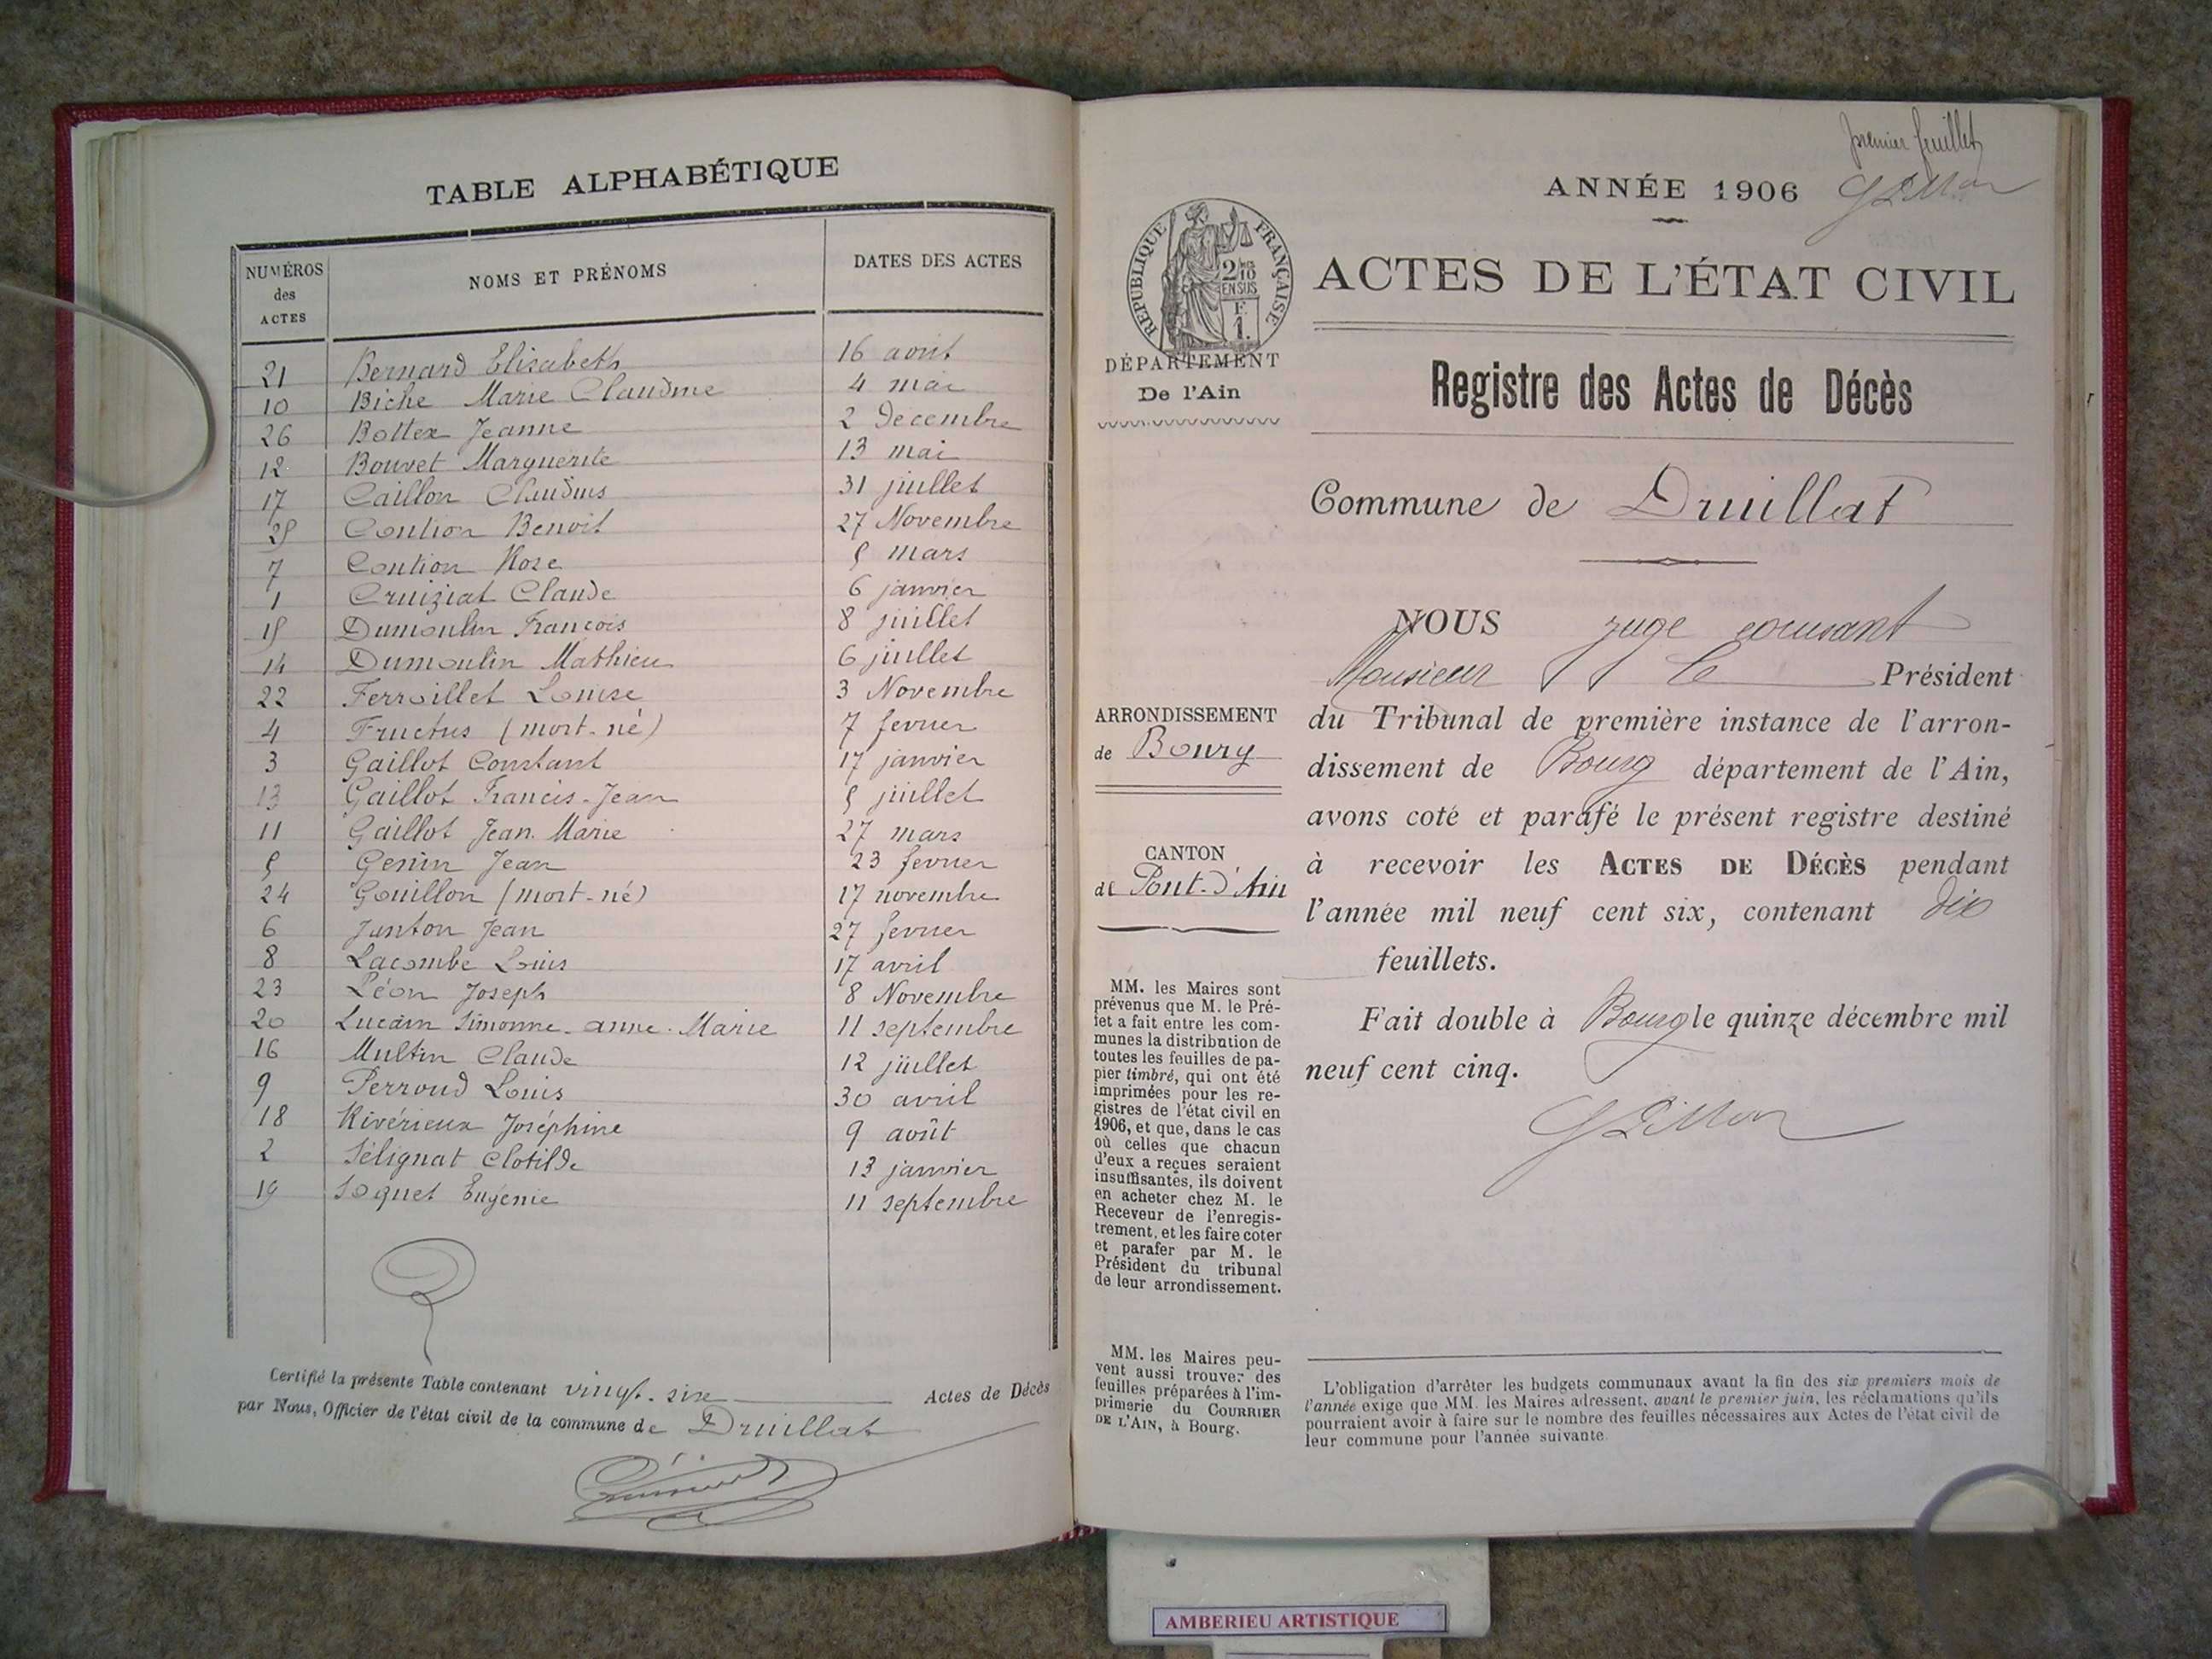 TABLE ALPHABÉTIQUE
NUMÉROS des ACTES NOMS ET PRÉNOMS DATES DES ACTES
21 Bernard Elisabeth 16 août
10 Biche Marie Claudine 4 mai
26 Bottex Jeanne 2 Decembre
12 Bouvet Marguerite 13 mai
17 Caillon Claudius 31 juillet
25 Coution Benoit 27 Novembre
7 Coution Rose 5 mars
1 Cruiziat Claude 6 janvier
15 Dumoulin François 8 juillet
14 Dumoulin Mathieu 6 juillet
22 Ferroillet Louise 3 Novembre
4 Fructus (mort-né) 7 fevrier
3 Gaillot Constant 17 janvier
13 Gaillot Francis-Jean 5 juillet
11 Gaillot Jean Marie 27 mars
5 Genin Jean 23 fevrier
24 Gouillon (mort-né) 17 novembre
6 Janton Jean 27 fevrier
8 Lacombe Louis 17 avril
23 Léon Joseph 8 Novembre
20 Lucain Simonne-anne-Marie 11 septembre
16 Multin Claude 12 juillet
9 Perroud Louis 30 avril
18 Rivérieux Joséphine 9 août
2 Sélignat Clotilde 13 janvier
19 Soquet Eugénie 11 septembre
Certifié la présente Table contenant vingt-six Actes de Décès
par Nous, Officier de l'état civil de la commune de Druillat
premier feuillet
ANNÉE 1906
RÉPUBLIQUE FRANÇAISE
2/10
EN SUS
F.
1.
ACTES DE L'ÉTAT CIVIL
DÉPARTEMENT
De l'Ain
Registre des Actes de Décès
Commune de Druillat
NOUS juge commis
Monsieur le Président
du Tribunal de première instance de l'arron-
dissement de Bourg département de l'Ain,
avons coté et parafé le présent registre destiné
à recevoir les ACTES DE DÉCÈS pendant
l'année mil neuf cent six, contenant dix
feuillets.
Fait double à Bourg le quinze décembre mil
neuf cent cinq.
ARRONDISSEMENT
de Bourg
CANTON
de Pont-d'Ain
MM. les Maires sont
prévenus que M. le Pré-
fet a fait entre les com-
munes la distribution de
toutes les feuilles de pa-
pier timbré, qui ont été
imprimées pour les re-
gistres de l'état civil en
1906, et que, dans le cas
où celles que chacun
d'eux a reçues seraient
insuffisantes, ils doivent
en acheter chez M. le
Receveur de l'enregis-
trement, et les faire coter
et parafer par M. le
Président du tribunal
de leur arrondissement.
MM. les Maires peu-
vent aussi trouver des
feuilles préparées à l'im-
primerie du COURRIER
DE L'AIN, à Bourg.
L'obligation d'arrêter les budgets communaux avant la fin des six premiers mois de
l'année exige que MM. les Maires adressent, avant le premier juin, les réclamations qu'ils
pourraient avoir à faire sur le nombre des feuilles nécessaires aux Actes de l'état civil de
leur commune pour l'année suivante.
AMBERIEU ARTISTIQUE